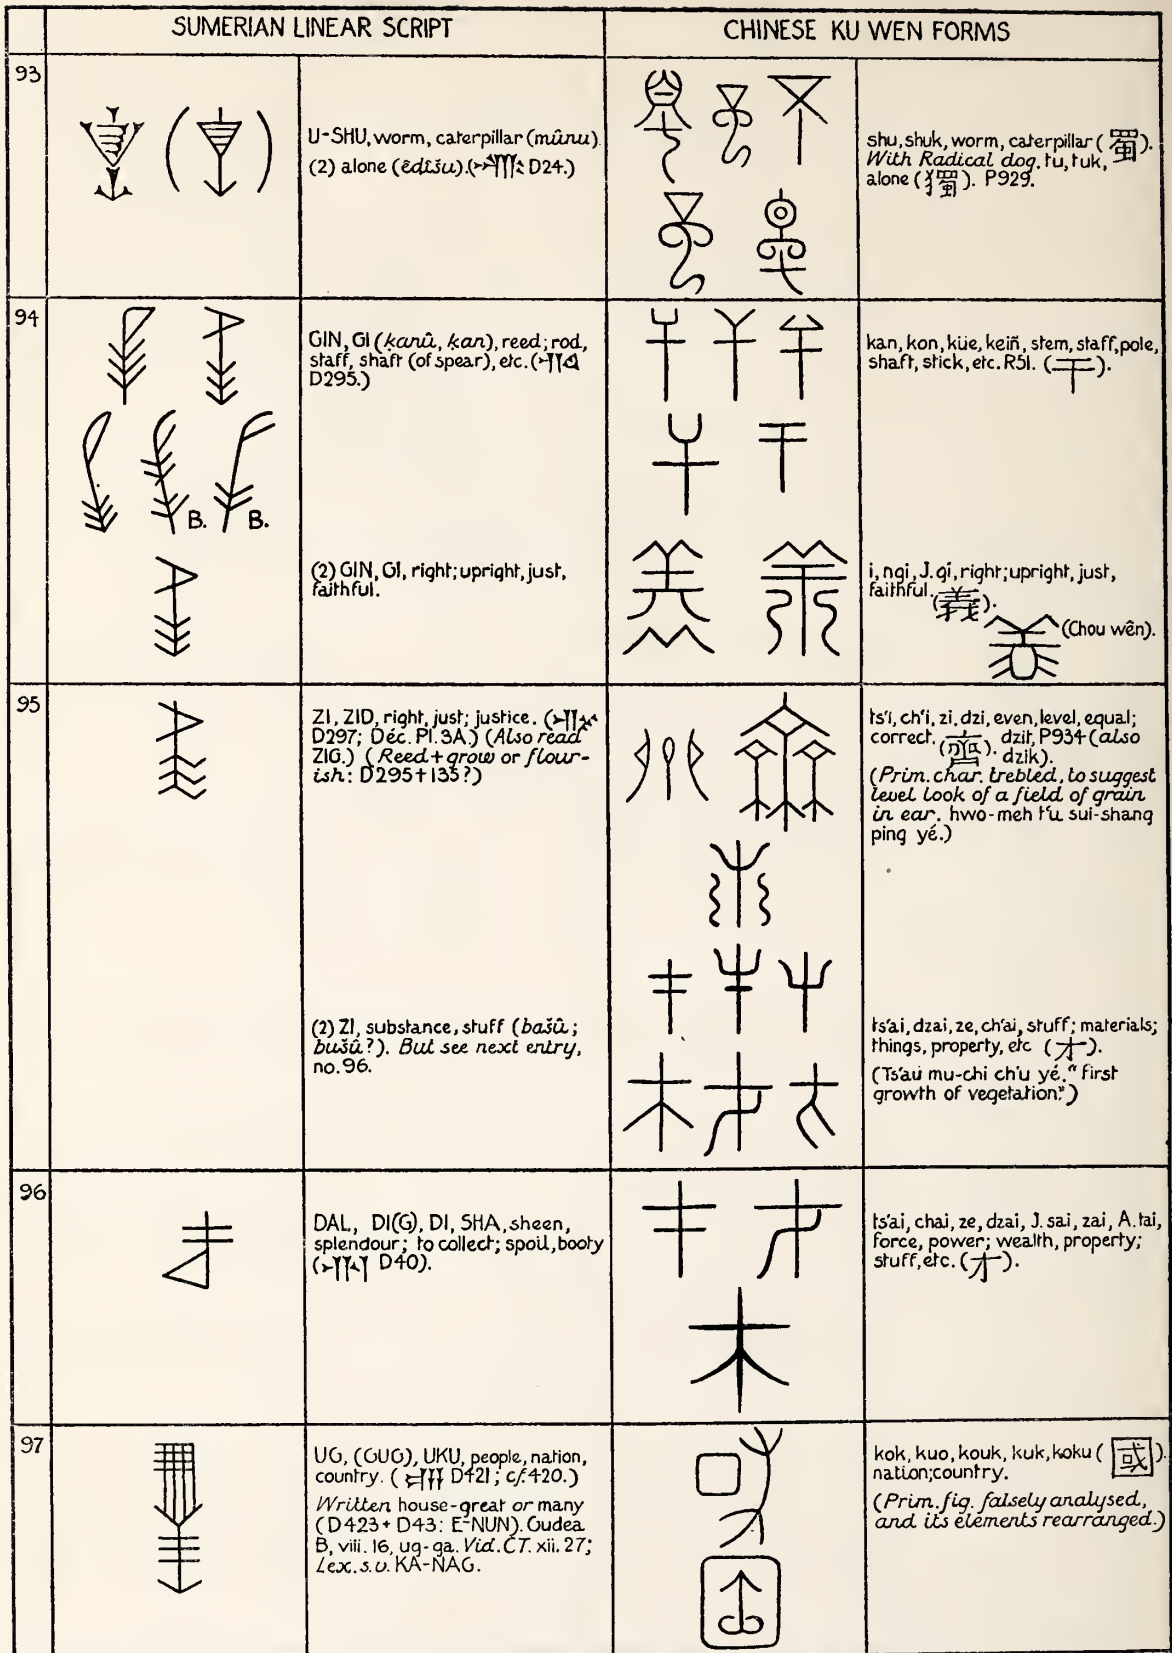 SUMERIAN LINEAR SCRIPT
CHINESE KU WEN FORMS
93
U-SHU, worm, caterpillar (mûnu)
(2) alone (ēdîšu). ( D24.)
shu, shuk, worm, caterpillar (蜀).
With Radical dog, tu, tuk,
alone (獨). P929.
94
GIN, GI (ḳanû, ḳan), reed; rod,
staff, shaft (of spear), etc. (
D295.)
B. B.
kan, kon, küe, keiñ, stem, staff, pole,
shaft, stick, etc. R51. (干).
(2) GIN, GI, right; upright, just,
faithful.
i, ngi, J. gi, right; upright, just,
faithful. (義).
(Chou wên).
95
ZI, ZID, right, just; justice. (
D297; Déc. Pl. 3A.) (Also read
ZIG.) (Reed + grow or flour-
ish: D295 + 135?)
ts'i, ch'i, zi, dzi, even, level, equal;
correct. (齊). dzit, P934 (also
dzik).
(Prim. char. trebled, to suggest
level look of a field of grain
in ear. hwo-meh t'u sui-shang
ping yé.)
(2) ZI, substance, stuff (bašû;
bušû?). But see next entry,
no. 96.
ts'ai, dzai, ze, ch'ai, stuff; materials;
things, property, etc (才).
(Ts'au mu-chi ch'u yé. "First
growth of vegetation.")
96
DAL, DI(G), DI, SHA, sheen,
splendour; to collect; spoil, booty
( D40).
ts'ai, chai, ze, dzai, J. sai, zai, A. tai,
force, power; wealth, property;
stuff, etc. (才).
97
UG, (GUG), UKU, people, nation,
country. ( D421; cf. 420.)
Written house-great or many
(D423 + D43: E-NUN). Gudea
B, viii. 16, ug-ga. Vid. CT. xii. 27;
Lex. s.v. KA-NAG.
kok, kuo, kouk, kuk, koku (國).
nation; country.
(Prim. fig. falsely analysed,
and its elements rearranged.)